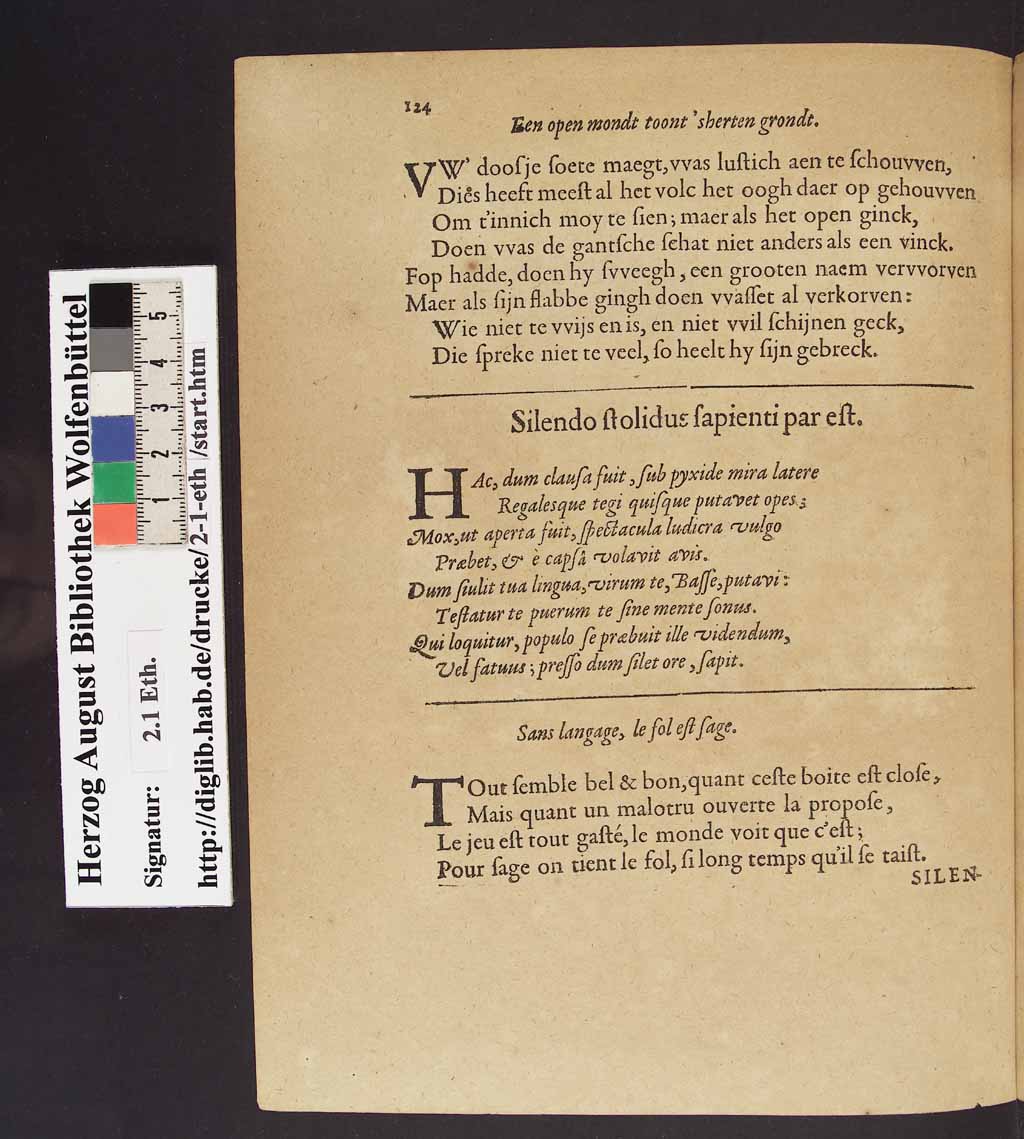 124
Een open mondt toont 'sherten grondt.
VW' dooſje ſoete maegt, vvas luſtich aen te ſchouvven,
Dies heeft meeſt al het volc het oogh daer op gehouvven
Om t'innich moy te ſien; maer als het open ginck,
Doen vvas de gantſche ſchat niet anders als een vinck.
Fop hadde, doen hy ſvveegh, een grooten naem vervvorven
Maer als ſijn flabbe gingh doen vvaſſet al verkorven:
Wie niet te vvijs en is, en niet vvil ſchijnen geck,
Die ſpreke niet te veel, ſo heelt hy ſijn gebreck.
Silendo ſtolidus ſapienti par eſt.
HAc, dum clauſa fuit, ſub pyxide mira latere
Regalesque tegi quiſque putavet opes;
Mox, ut aperta fuit, ſpectacula ludicra vulgo
Præbet, & è capſâ volavit avis.
Dum ſiulit tua lingua, virum te, Baſſe, putavi:
Teſtatur te puerum te ſine mente ſonus.
Qui loquitur, populo ſe præbuit ille videndum,
Vel fatuus; preſſo dum ſilet ore, ſapit.
Sans langage, le fol eſt ſage.
TOut ſemble bel & bon, quant ceſte boite eſt cloſe,
Mais quant un malotru ouverte la propoſe,
Le jeu eſt tout gaſté, le monde voit que c'eſt;
Pour ſage on tient le fol, ſi long temps qu'il ſe taiſt.
SILEN-
Herzog August Bibliothek Wolfenbüttel
Signatur: 2.1 Eth.
http://diglib.hab.de/drucke/2-1-eth /start.htm
1 2 3 4 5